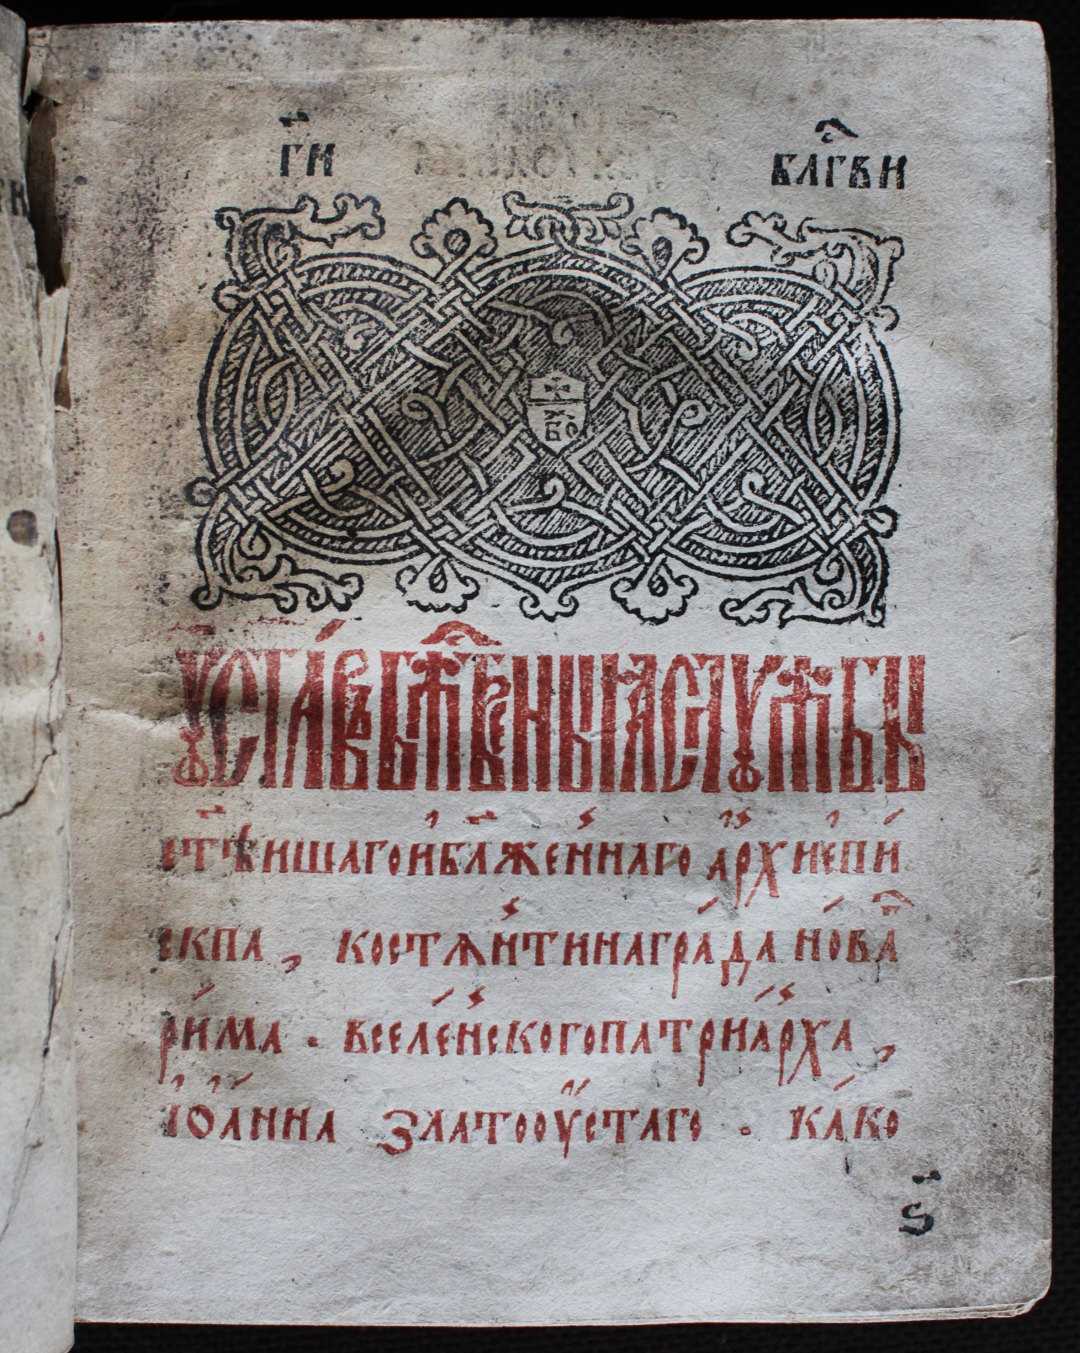 г҃и блг҃ви
бо
уста́въбж҃ественныѧслꙋжбы
ст҃ѣишагоиблаже́ннаго архиепи
скпа, костѧнтинагра́да но́ва
ри́ма. вселе́нскогопатриа́рха,
іѡанна златооустаго. ка́ко
ѕ҃